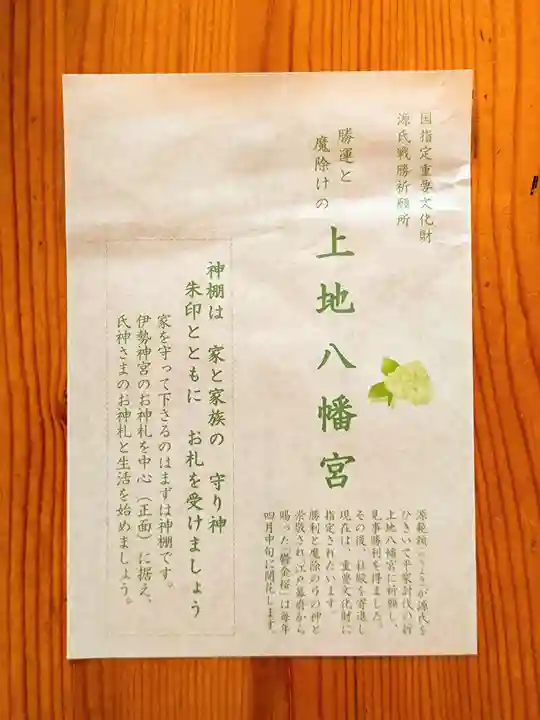 国指定重要文化財
源氏戦勝祈願所
勝運と
魔除けの
上地八幡宮
源範頼(のりより)が源氏を
ひきいて平家討伐の折
上地八幡宮に祈願し、
見事勝利を得ました。
その後、社殿を寄進し
現在は、重要文化財に
指定されています。
勝利と魔除の弓の神と
崇敬され江戸幕府から
賜った「鬱金桜」は毎年
四月中旬に開花します。
神棚は 家と家族の 守り神
朱印とともに お札を受けましょう
家を守って下さるのはまずは神棚です。
伊勢神宮のお神札を中心(正面)に据え、
氏神さまのお神札と生活を始めましょう。